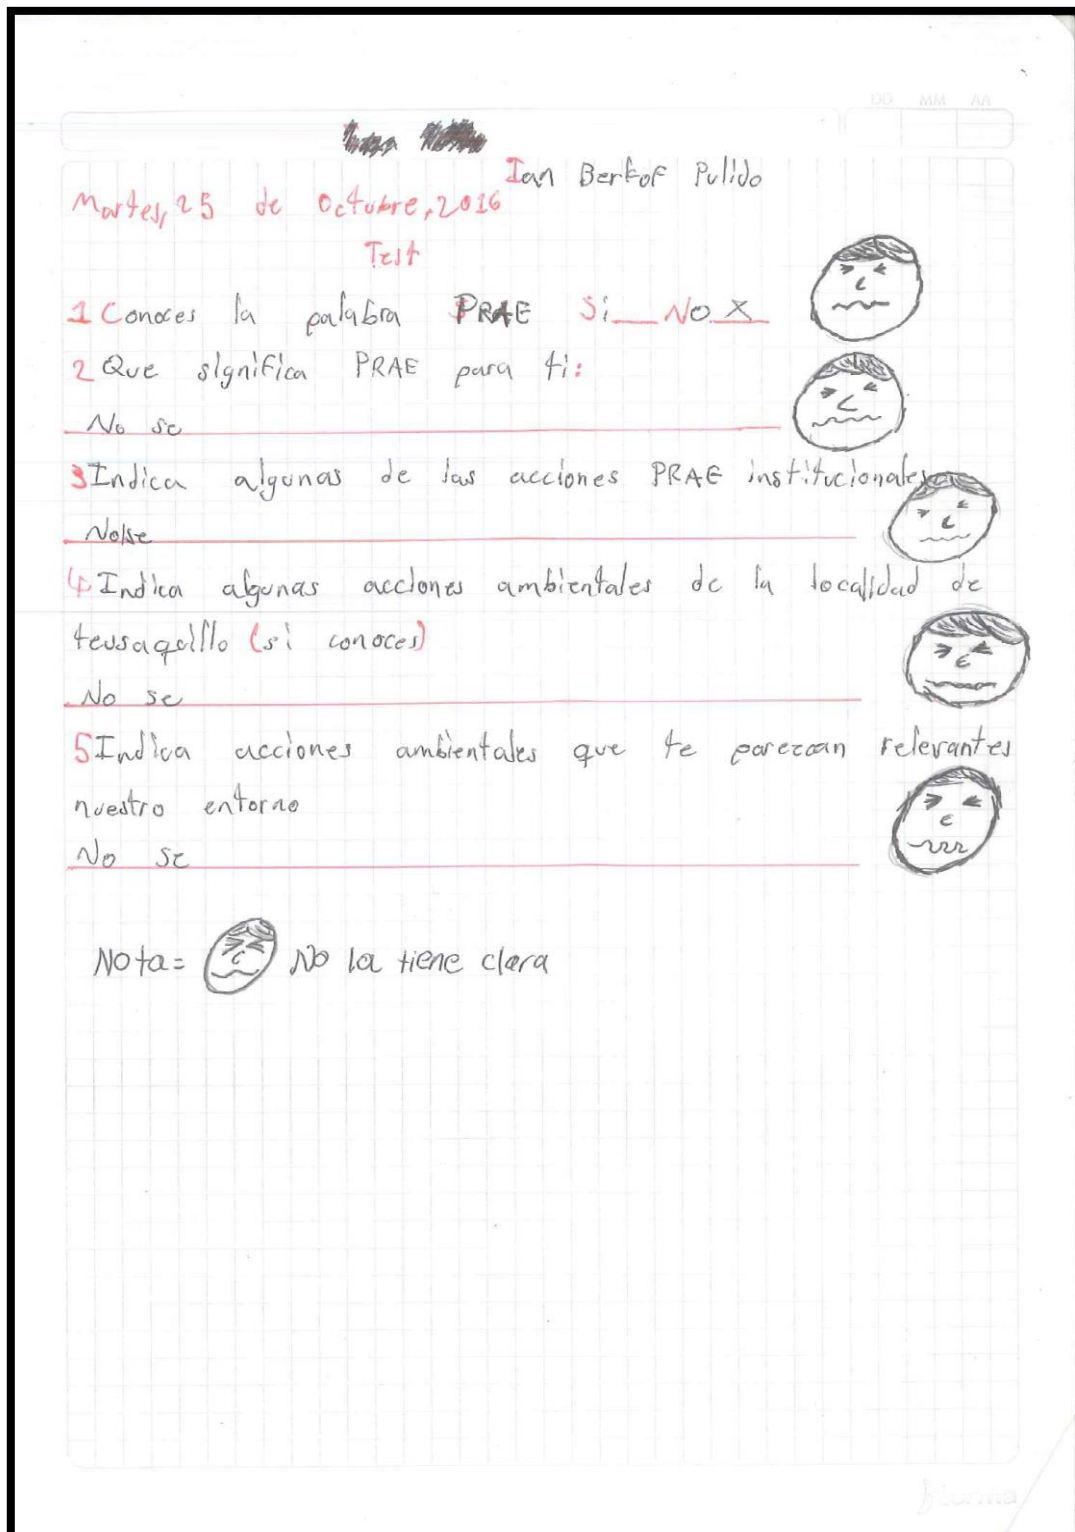 DD MM AA
Ian Berkof Pulido
Martes, 25 de Octubre, 2016
Test
1 Conoces la palabra PRAE Si __ No X
2 Que significa PRAE para ti:
No se
3 Indica algunas de las acciones PRAE institucionales
No se
4 Indica algunas acciones ambientales de la localidad de
teusaquillo (si conoces)
No se
5 Indica acciones ambientales que te parezcan relevantes
nuestro entorno
No se
Nota= No la tiene clara
norma